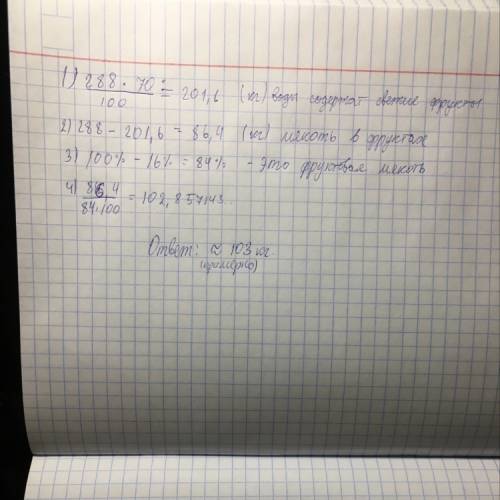 1) 288 · 70 / 100 = 201,6 (кг) воды содержат свежие фрукты
2) 288 - 201,6 = 86,4 (кг) мякоть в фруктах
3) 100% - 16% = 84% - Это фруктовая мякоть
4) 86,4 / 84·100 = 102,857143..
Ответ: ≈ 103 кг.
(примерно)